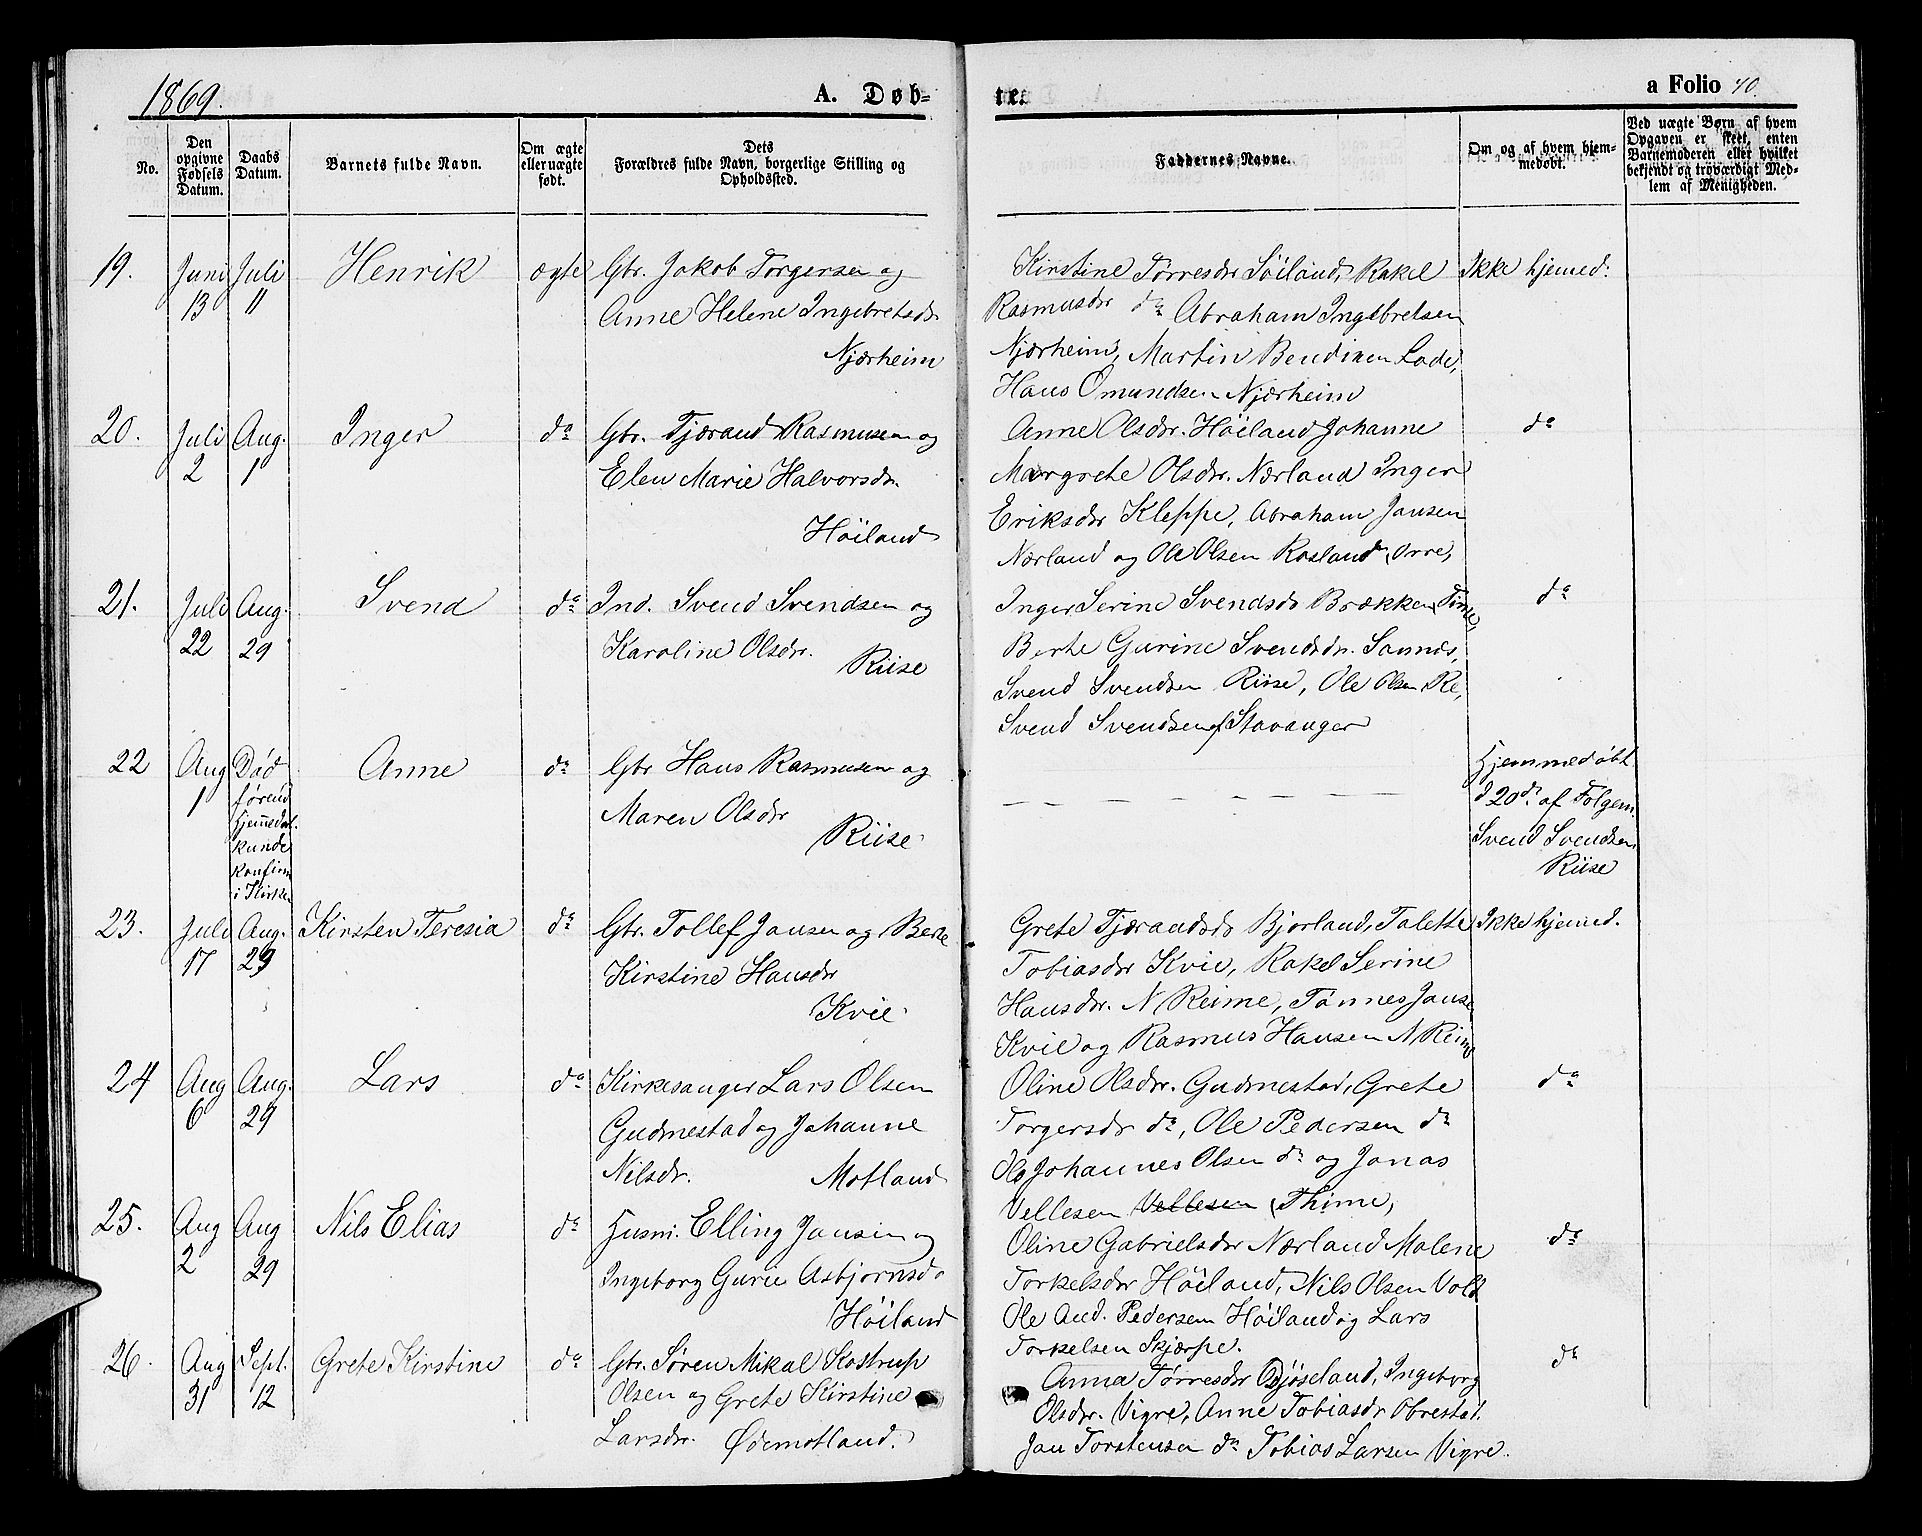 1869.
A. Døb-
te.
a Folio 40.
No.
Den opgivne Fødsels Datum.
Daabs Datum.
Barnets fulde Navn.
Om ægte eller uægte født.
Dets Forældres fulde Navn, borgerlige Stilling og Opholdssted.
Faddernes Navne.
Om og af hvem hjemmedøbt.
Ved uægte Børn af hvem Opgaven er skeet, enten Barnemoderen eller hvilket bekjendt og troværdigt Medlem af Menigheden.
19.
Juni 13
Juli 11
Henrik
ægte
Gbr. Jakob Torgersen og
Anne Helene Ingebretsdr
Njærheim
Kirstine Tørresdr Söiland, Rakel
Rasmusdr do Abraham Ingebretsen
Njærheim, Martin Bendixen Lode,
Hans Omundsen Njærheim
Ikke hjemed:
20.
Juli 2
Aug. 1
Inger
do
Gbr. Tjæraud Rasmusen og
Elen Marie Halvorsdr.
Höiland
Anne Olsdr. Höiland Johanne
Margrete Olsdr. Nærland Inger
Eriksdr Kleppe, Abraham Jansen
Nærland og Ole Olsen Rosland, Orre,
do
21.
Juli 22
Aug. 29
Svend
do
Ind. Svend Svendsen og
Karoline Olsdr.
Riise
Inger Serine Svendsdr Brækken, Time,
Berte Gurine Svendsdr. Sannes,
Svend Svendsen Riise, Ole Olsen Re,
Svend Svendsen af Stavanger
do
22
Aug 1
Död
förend
Hjemedøb.
kunde
konfirm
i Kirken
Anne
do
Gbr Hans Rasmusen og
Maren Olsdr
Riise
Hjemmedøbt
d 20de af Folgem.
Svend Svendsen
Riise
23.
Juli 17
Aug. 29
Kirsten Teresia
do
Gbr. Tollef Jansen og Berte
Kirstine Hansdr
Kvie
Grete Tjæraudsdr Bjorland, Talette
Tobiasdr Kvie, Rakel Serine
Hansdr. N Reime, Tönnes Janse
Kvie og Rasmus Hansen N Reime
Ikke hjemed.
24
Aug 6
Aug. 29
Lars
do
Kirkesanger Lars Olsen
Gudmestad og Johanne
Nilsdr. Motland
Oline Olsdr. Gudmestad, Grete
Torgersdr do, Ole Pedersen do
Johannes Olsen do og Jonas
Vellesen Vellesen, Thime,
do
25.
Aug 2
Aug 29
Nils Elias
do
Husm. Elling Jansen og
Ingeborg Gurie Asbjornsdr
Höiland
Oline Gabrielsdr Nærland Malene
Torkelsdr Höiland, Nils Olsen Vold
Ole And. Pedersen Höiland og Lars
Torkelsen Skjærpe.
do
26.
Aug 31
Sept. 12
Grete Kirstine
do
Gbr. Søren Mikal Kostrup
Olsen og Grete Kirstine
Larsdr. Ødemotland.
Anna Tørresdr Djöseland, Ingeborg
Olsdr. Vigre, Anne Tobiasdr Obrestad.
Jan Torstensen do Tobias Larsen Vigre.
do